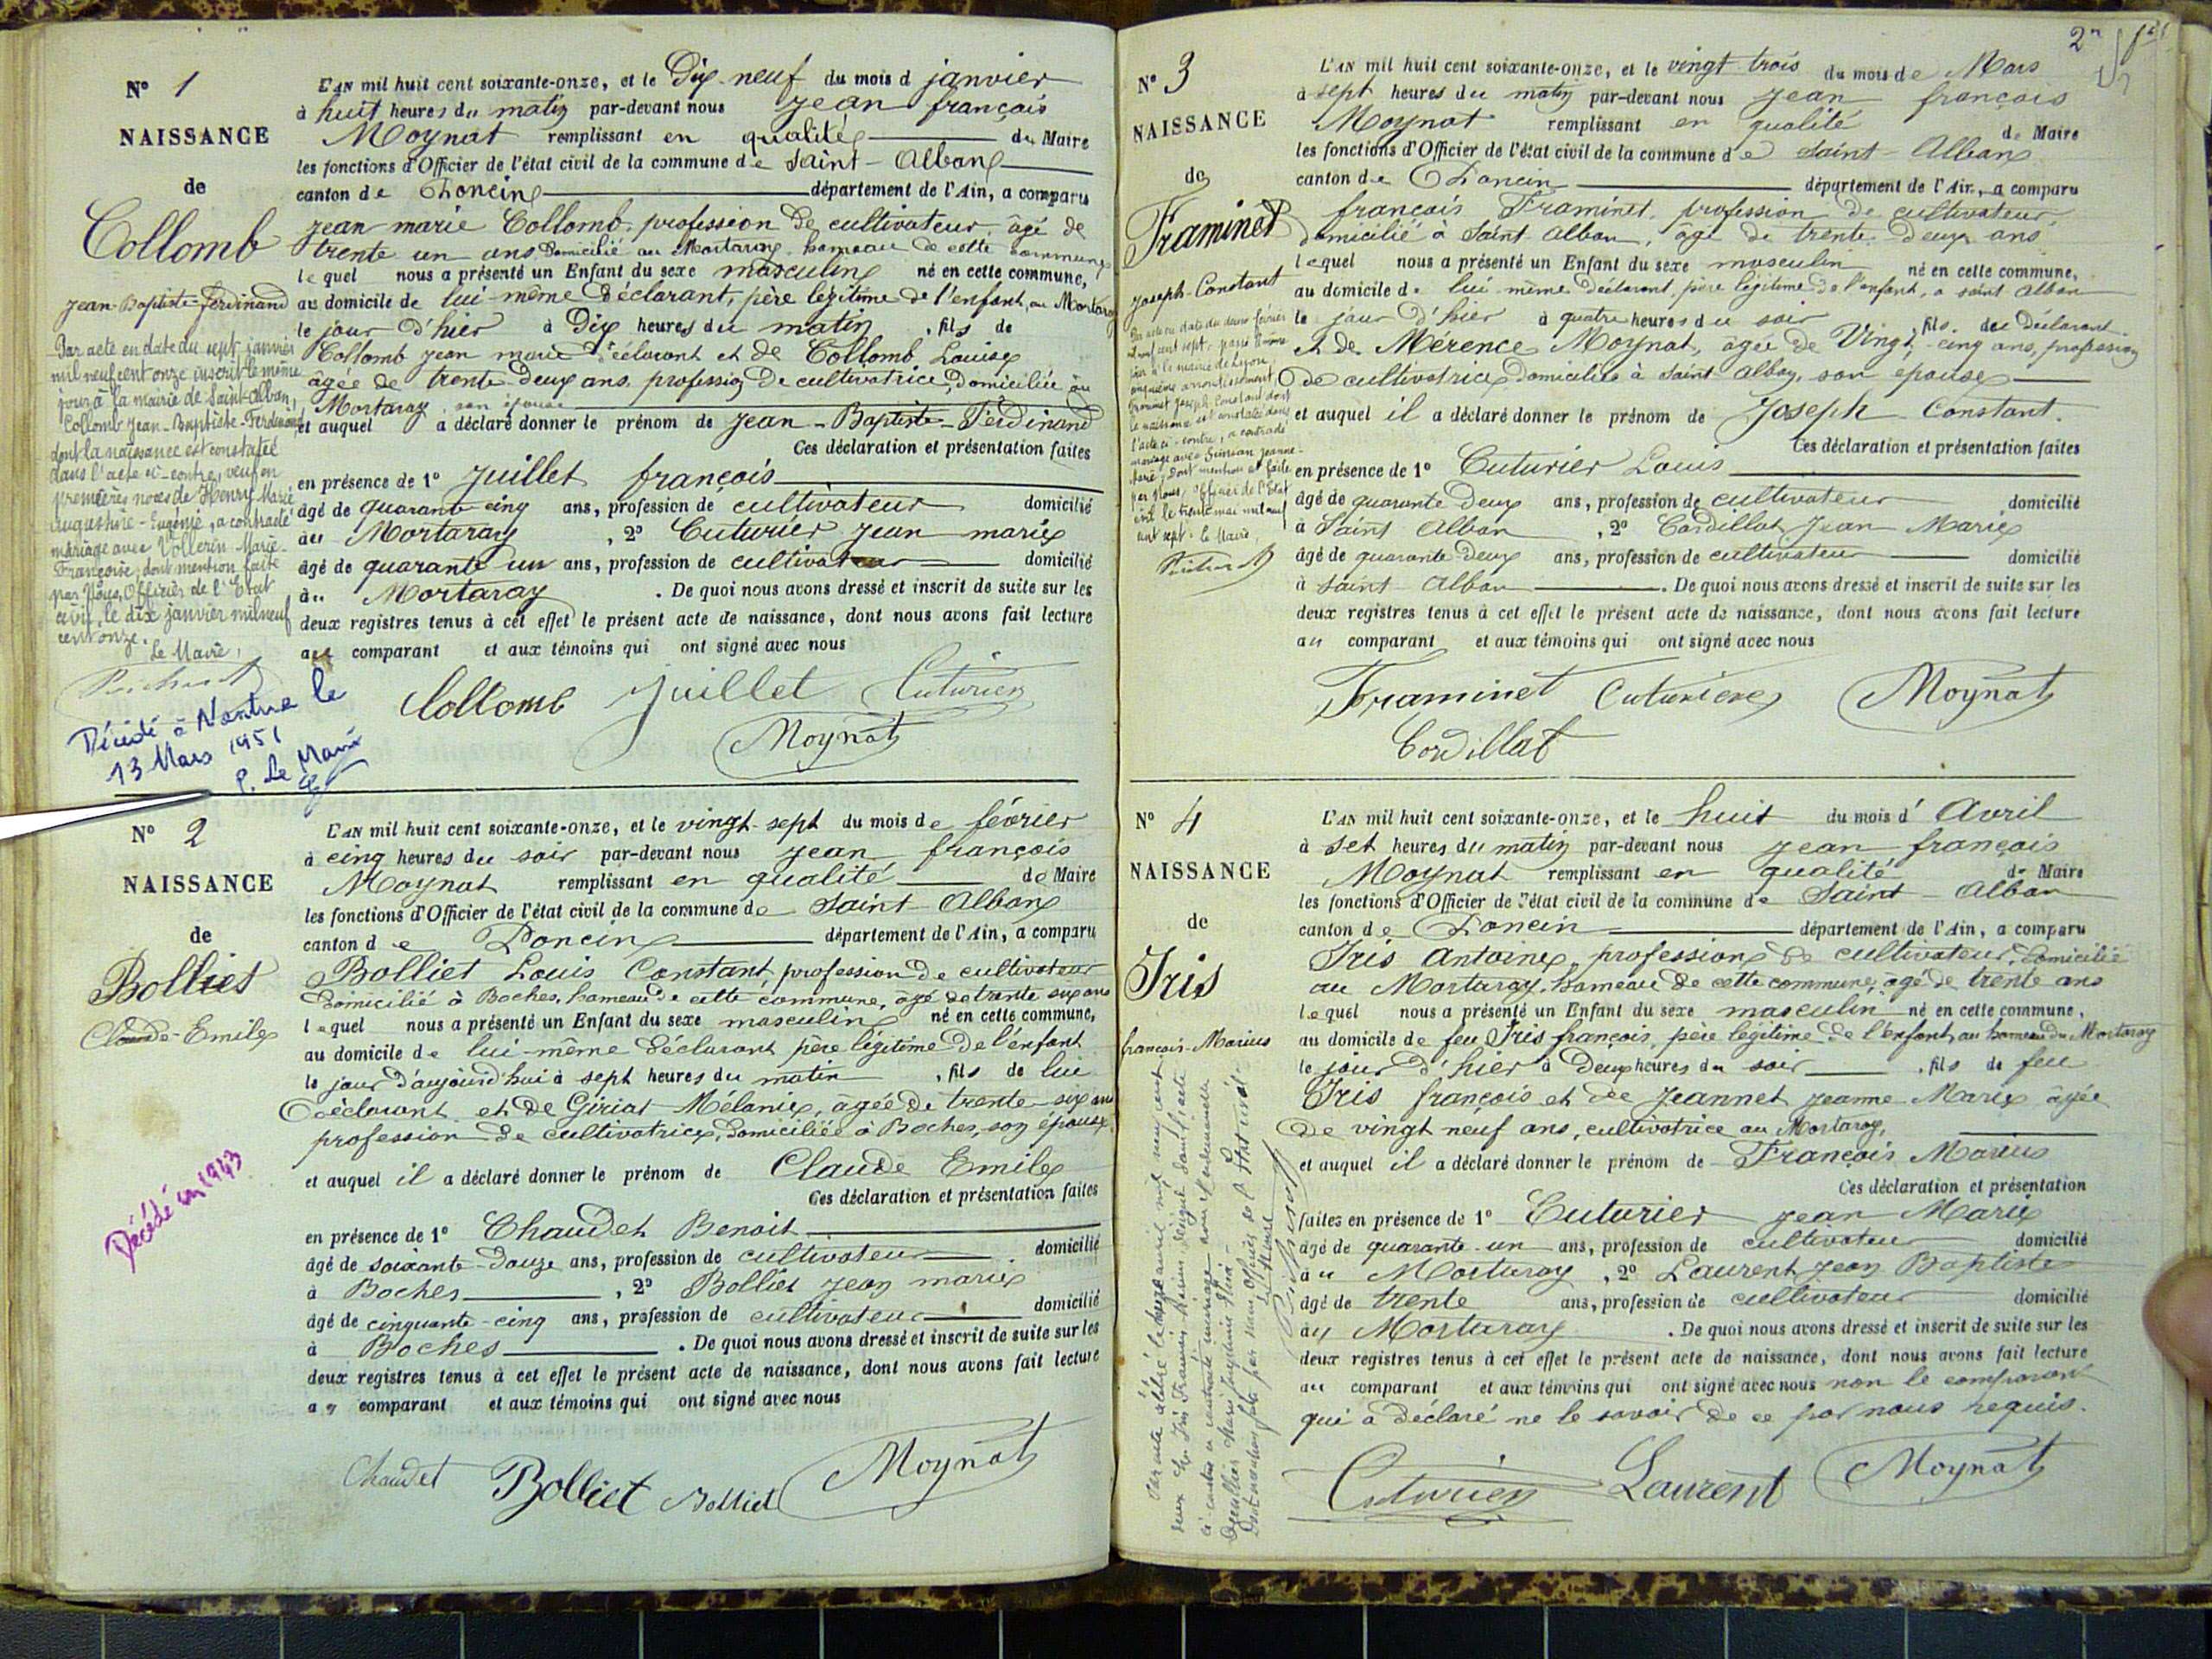 N° 1
NAISSANCE
de
Collomb
Jean-Baptiste-Ferdinand
Par acte en date du sept janvier
mil neuf cent onze inscrit le même
jour à la mairie de Saint-Alban,
Collomb Jean-Baptiste-Ferdinand
dont la naissance est constatée
dans l'acte ci-contre, veuf en
premières noces de Henry Marie
Augustine-Eugénie, a contracté
mariage avec Vollerin Marie-
Françoise, dont mention faite
par Nous, Officier de l'Etat
civil, le dix janvier mil neuf
cent onze.
Le Maire,
Décédé à Nantua le
13 Mars 1951
P. Le Maire
L'AN mil huit cent soixante-onze, et le Dix-neuf du mois d janvier
à huit heures du matin par-devant nous jean françois
Moynat remplissant en qualité du Maire
les fonctions d'Officier de l'état civil de la commune de Saint-Alban
canton de Poncin département de l'Ain, a comparu
jean marie Collomb, profession de cultivateur, âgé de
trente un ans, Domicilié au Mortaray, hameau de cette commune
lequel nous a présenté un Enfant du sexe masculin né en cette commune,
au domicile de lui-même Déclarant, père légitime de l'enfant, au Mortaray
le jour d'hier à Dix heures du matin, fils de
Collomb jean marie Déclarant et de Collomb Louise
âgée de trente-deux ans, profession De cultivatrice, Domiciliée au
Mortaray, son épouse
et auquel a déclaré donner le prénom de Jean-Baptiste-Ferdinand
Ces déclaration et présentation faites
en présence de 1° Juillet françois
âgé de quarante cinq ans, profession de cultivateur domicilié
au Mortaray, 2° Cuturier jean marie
âgé de quarante un ans, profession de cultivateur domicilié
au Mortaray. De quoi nous avons dressé et inscrit de suite sur les
deux registres tenus à cet effet le présent acte de naissance, dont nous avons fait lecture
au comparant et aux témoins qui ont signé avec nous
Collomb Juillet Cuturier
Moynat
N° 2
NAISSANCE
de
Bolliet
Claude-Emile
Décédé en 1943
L'AN mil huit cent soixante-onze, et le vingt-sept du mois de février
à cinq heures du soir par-devant nous jean françois
Moynat remplissant en qualité de Maire
les fonctions d'Officier de l'état civil de la commune de Saint-Alban
canton de Poncin département de l'Ain, a comparu
Bolliet Louis Constant, profession de cultivateur
Domicilié à Boches, hameau de cette commune, âgé de trente six ans
lequel nous a présenté un Enfant du sexe masculin né en cette commune,
au domicile de lui-même Déclarant père légitime De l'enfant
le jour d'aujourd'hui à sept heures du matin, fils de lui
Déclarant et de Giriat Mélanie, âgée de trente-six ans
profession De cultivatrice, Domiciliée à Boches, son épouse
et auquel il a déclaré donner le prénom de Claude Emile
Ces déclaration et présentation faites
en présence de 1° Chaudet Benoit
âgé de soixante-Douze ans, profession de cultivateur domicilié
à Boches, 2° Bolliet jean marie
âgé de cinquante-cinq ans, profession de cultivateur domicilié
à Boches. De quoi nous avons dressé et inscrit de suite sur les
deux registres tenus à cet effet le présent acte de naissance, dont nous avons fait lecture
au comparant et aux témoins qui ont signé avec nous
Chaudet Bolliet Bolliet Moynat
N° 3
NAISSANCE
de
Framinet
Joseph-Constant
L'AN mil huit cent soixante-onze, et le vingt trois du mois de Mars
à sept heures du matin par-devant nous jean françois
Moynat remplissant en qualité de Maire
les fonctions d'Officier de l'état civil de la commune de Saint-Alban
canton de Poncin département de l'Ain, a comparu
françois Framinet, profession de cultivateur
domicilié à Saint-Alban, âgé de trente deux ans
lequel nous a présenté un Enfant du sexe masculin né en cette commune,
au domicile de lui-même Déclarant, père légitime de l'enfant, à saint Alban
le jour d'hier à quatre heures du soir fils du Déclarant
et de Mérence Moynat, âgée de Vingt-cinq ans, profession
de cultivatrice domiciliée à Saint-Alban, son épouse
et auquel il a déclaré donner le prénom de Joseph Constant.
Ces déclaration et présentation faites
en présence de 1° Cuturier Louis
âgé de quarante Deux ans, profession de cultivateur domicilié
à Saint Alban, 2° Cordillat Jean Marie
âgé de quarante Deux ans, profession de cultivateur domicilié
à Saint Alban. De quoi nous avons dressé et inscrit de suite sur les
deux registres tenus à cet effet le présent acte de naissance, dont nous avons fait lecture
au comparant et aux témoins qui ont signé avec nous
Framinet Cuturier Moynat
Cordillat
N° 4
NAISSANCE
de
Iris
françois-Marius
L'AN mil huit cent soixante-onze, et le huit du mois d'Avril
à set heures du matin par-devant nous jean françois
Moynat remplissant en qualité de Maire
les fonctions d'Officier de l'état civil de la commune de Saint-Alban
canton de Poncin département de l'Ain, a comparu
Iris Antoine, profession de cultivateur, Domicilié
au Mortaray, hameau de cette commune, âgé de trente ans
lequel nous a présenté un Enfant du sexe masculin né en cette commune,
au domicile de feu Iris françois, père légitime de l'enfant, au hameau du Mortaray
le jour d'hier à Deux heures du soir, fils de feu
Iris françois et de Jeannet jeanne-Marie âgée
de vingt neuf ans, cultivatrice au Mortaray,
et auquel il a déclaré donner le prénom de François Marius
Ces déclaration et présentation
faites en présence de 1° Cuturier jean Marie
âgé de quarante-un ans, profession de cultivateur domicilié
au Mortaray, 2° Laurent Jean Baptiste
âgé de trente ans, profession de cultivateur domicilié
au Mortaray. De quoi nous avons dressé et inscrit de suite sur les
deux registres tenus à cet effet le présent acte de naissance, dont nous avons fait lecture
au comparant et aux témoins qui ont signé avec nous non le comparant
qui a déclaré ne le savoir de ce par nous requis.
Cuturier Laurent Moynat